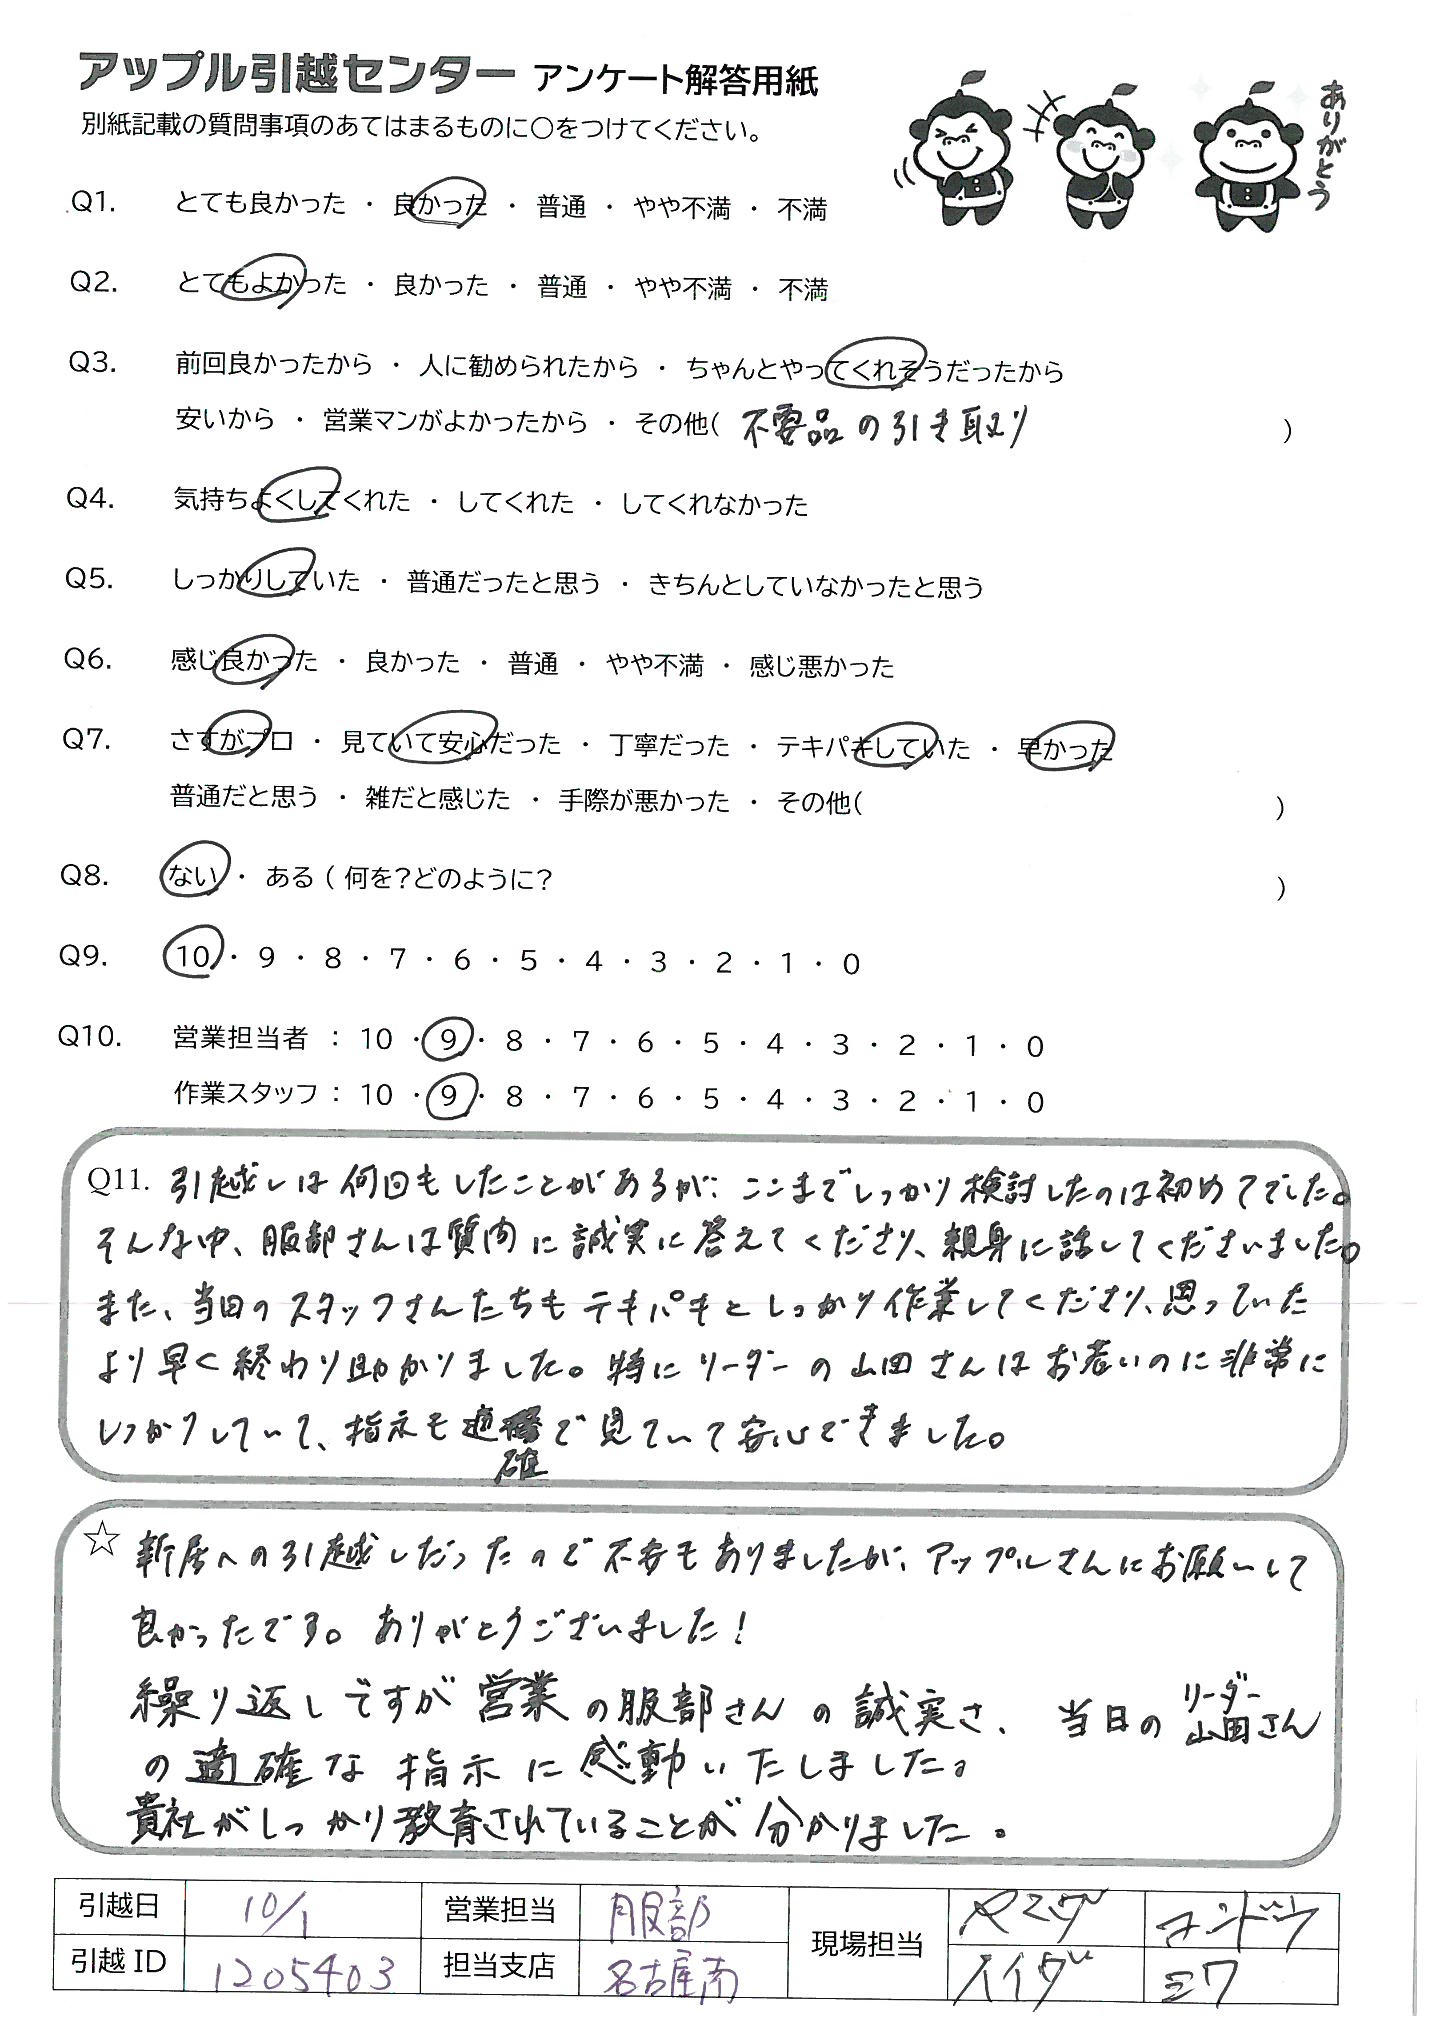 アップル引越センター アンケート解答用紙
別紙記載の質問事項のあてはまるものに○をつけてください。
ありがとう
Q1. とても良かった ・ 良かった ・ 普通 ・ やや不満 ・ 不満
Q2. とてもよかった ・ 良かった ・ 普通 ・ やや不満 ・ 不満
Q3. 前回良かったから ・ 人に勧められたから ・ ちゃんとやってくれそうだったから
安いから ・ 営業マンがよかったから ・ その他( 不要品の引き取り )
Q4. 気持ちよくしてくれた ・ してくれた ・ してくれなかった
Q5. しっかりしていた ・ 普通だったと思う ・ きちんとしていなかったと思う
Q6. 感じ良かった ・ 良かった ・ 普通 ・ やや不満 ・ 感じ悪かった
Q7. さすがプロ ・ 見ていて安心だった ・ 丁寧だった ・ テキパキしていた ・ 早かった
普通だと思う ・ 雑だと感じた ・ 手際が悪かった ・ その他( )
Q8. ない ・ ある ( 何を?どのように? )
Q9. 10 ・ 9 ・ 8 ・ 7 ・ 6 ・ 5 ・ 4 ・ 3 ・ 2 ・ 1 ・ 0
Q10. 営業担当者 : 10 ・ 9 ・ 8 ・ 7 ・ 6 ・ 5 ・ 4 ・ 3 ・ 2 ・ 1 ・ 0
作業スタッフ : 10 ・ 9 ・ 8 ・ 7 ・ 6 ・ 5 ・ 4 ・ 3 ・ 2 ・ 1 ・ 0
Q11. 引越しは何回もしたことがあるが、ここまでしっかり検討したのは初めてでした。
そんな中、服部さんは質問に誠実に答えてくださり、親身に話してくださいました。
また、当日のスタッフさんたちもテキパキとしっかり作業してくださり、思っていた
より早く終わり助かりました。特にリーダーの山田さんはお若いのに非常に
しっかりしていて、指示も適確で見ていて安心できました。
☆ 新居への引越しだったので不安もありましたが、アップルさんにお願いして
良かったです。ありがとうございました!
繰り返しですが営業の服部さんの誠実さ、当日のリーダー山田さん
の適確な指示に感動いたしました。
貴社がしっかり教育されていることが分かりました。
引越日 10/1 営業担当 服部 現場担当 ヤマダ コンドウ
引越ID 1205403 担当支店 名古屋南 ハイダ ミワ